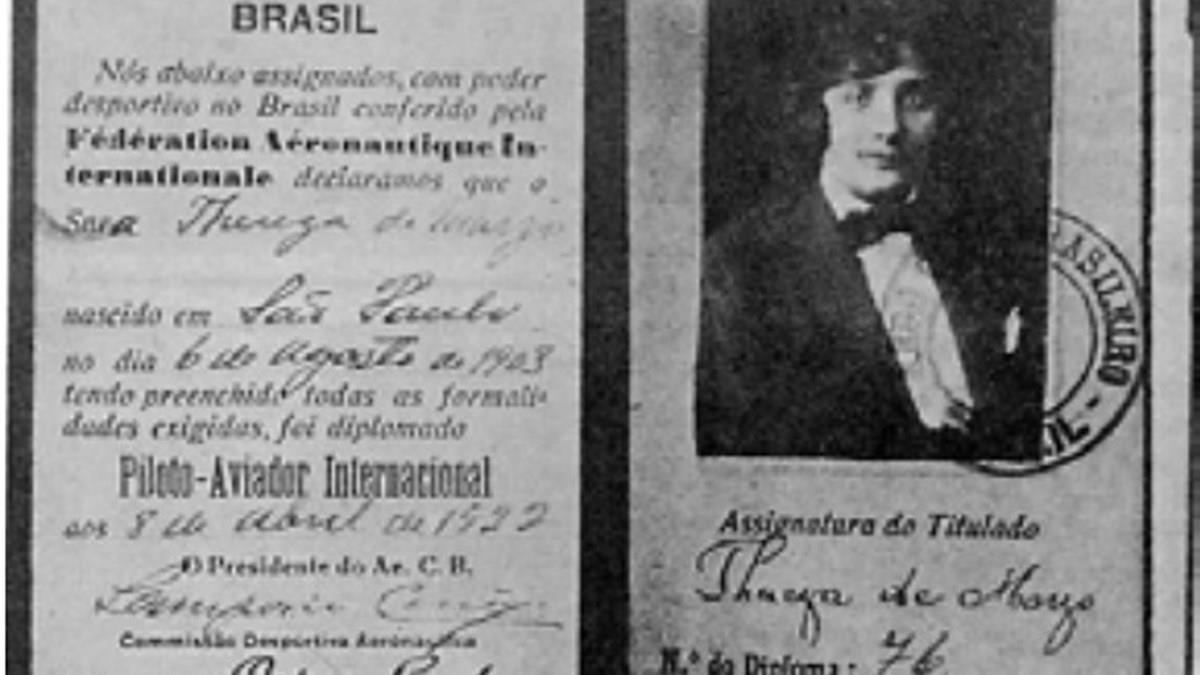 BRASIL
Nós abaixo assignados, com poder
desportivo no Brasil conferido pela
Fédération Aéronautique In-
ternationale declaramos que o
Snra Thereza de Marzo
nascido em São Paulo
no dia 6 de agosto de 1903
tendo preenchido todas as formali-
dades exigidas, foi diplomado
Piloto-Aviador Internacional
aos 8 de abril de 1922
O Presidente do Ae. C. B.
Commissão Desportiva Aeronautica
BRASILEIRO -
Assignatura do Titulado
Thereza de Marzo
N.º do Diploma: 76